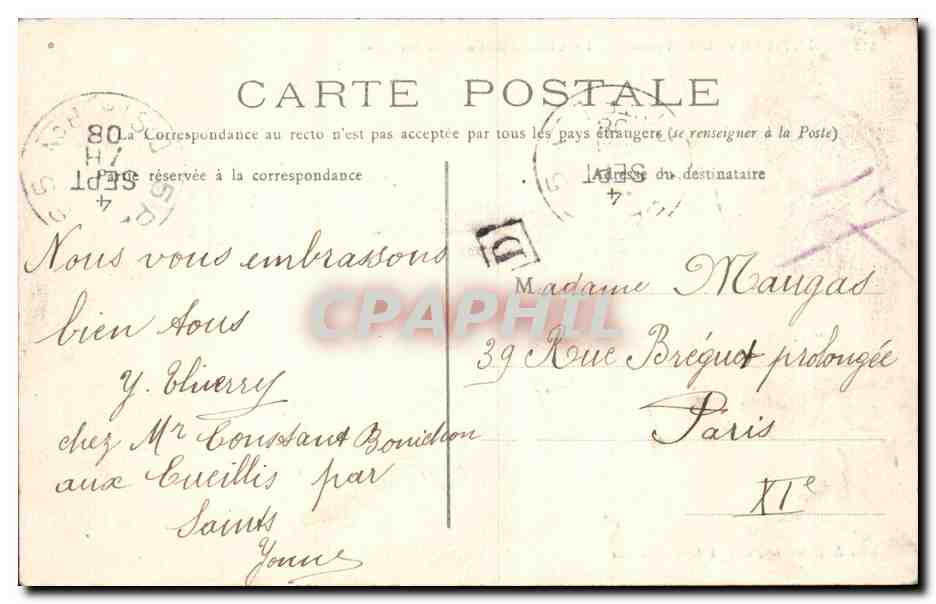 CARTE POSTALE
La Correspondance au recto n'est pas acceptée par tous les pays étrangers (se renseigner à la Poste)
Partie réservée à la correspondance
Adresse du destinataire
08
7 H
SEPT
4
SEPT
4
D
Nous vous embrassons
bien tous
Y. Thierry
chez Mr Constant Bonichon
aux Cueillis par
Saints
Yonne
Madame Maugas
39 Rue Bréguet prolongée
Paris
XIe
CPAPHIL